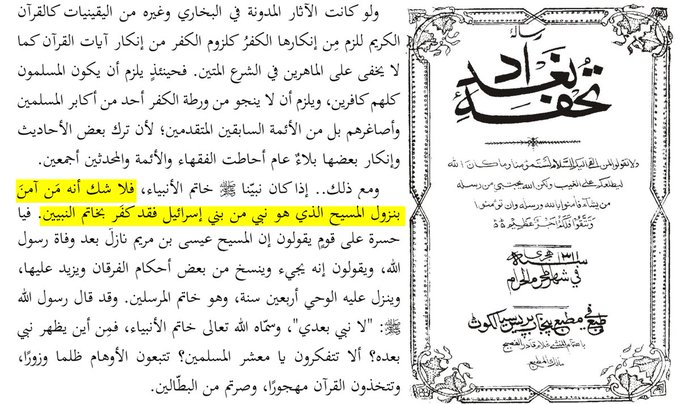 ولو كانت الآثار المدونة في البخاري وغيره من اليقينيات كالقرآن
الكريم للزم مِن إنكارها الكفرُ كلزوم الكفر من إنكار آيات القرآن كما
لا يخفى على الماهرين في الشرع المتين. فحينئذٍ يلزم أن يكون المسلمون
كلهم كافرين، ويلزم أن لا ينجو من ورطة الكفر أحد من أكابر المسلمين
وأصاغرهم بل من الأئمة السابقين المتقدمين؛ لأن ترك بعض الأحاديث
وإنكار بعضها بلاءٌ عام أحاطت الفقهاء والأئمة والمحدثين أجمعين.
ومع ذلك.. إذا كان نبيّنا ﷺ خاتم الأنبياء، فلا شك أنه مَن آمنَ
بنزول المسيح الذي هو نبي من بني إسرائيل فقد كفَر بخاتم النبيين. فيا
حسرة على قومٍ يقولون إن المسيح عيسى بن مريم نازلَ بعد وفاة رسول
الله، ويقولون إنه يجيء وينسخ من بعض أحكام الفرقان ويزيد عليها،
وينزل عليه الوحي أربعين سنة، وهو خاتم المرسلين. وقد قال رسول الله
ﷺ: "لا نبي بعدي"، وسمّاه الله تعالى خاتم الأنبياء، فمِن أين يظهر نبي
بعده؟ ألا تتفكرون يا معشر المسلمين؟ تتبعون الأوهام ظلما وزورًا،
وتتخذون القرآن مهجورًا، وصرتم من البطّالين.
رسالة
تحفة بغداد
ولا تقولوا لمن القى اليكم السلام لست مؤمنا وما كان الله
ليطلعكم على الغيب ولكن الله يجتبي من رسله
من يشاء فآمنوا بالله ورسله وان تؤمنوا
وتتقوا فلكم اجر عظيم
سنة ١٣١١ هجري
في شهر المحرم الحرام
طبع في مطبع پنجاب پريس سيالكوٹ